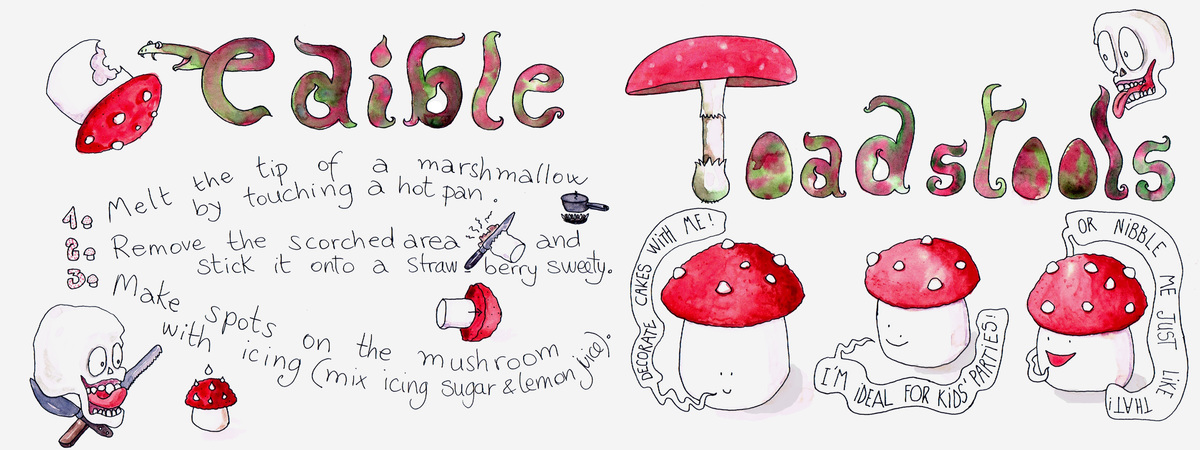 Edible
Toadstools
1. Melt the tip of a marshmallow
by touching a hot pan.
2. Remove the scorched area and
stick it onto a straw-berry sweety.
3. Make spots on the mushroom
with icing (mix icing sugar & lemon juice).
DECORATE CAKES WITH ME!
I'M IDEAL FOR KIDS' PARTIES!
OR NIBBLE ME JUST LIKE THAT!